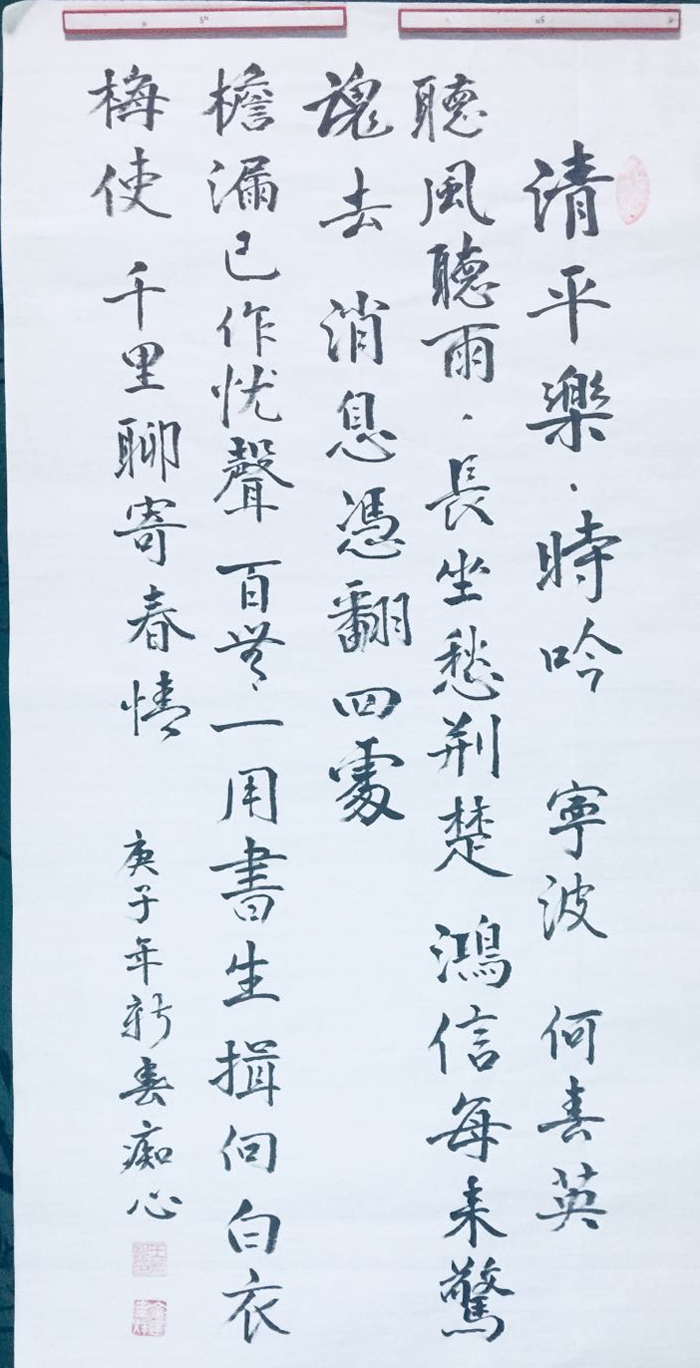 清平樂·時吟 寧波 何春英
聽風聽雨·長坐愁荆楚 鴻信每来驚
魂去 消息憑翻四處
檐漏已作忧聲 百无一用書生 揖向白衣
梅使 千里聊寄春情
庚子年新春痴心